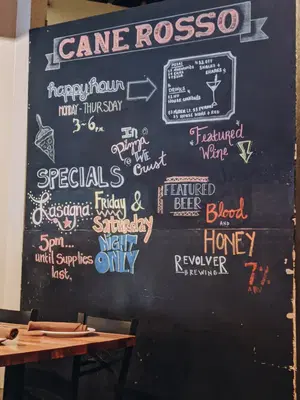 CANE ROSSO
happy hour
MONDAY - THURSDAY
3-6pm
In
pizza
WE
Crust
Featured
Wine
SPECIALS
Lasagna
5pm...
until supplies
last.
Friday &
Saturday
NIGHT
ONLY
FEATURED
BEER
Blood
AND
HONEY
REVOLVER
BREWING
7%
ABV